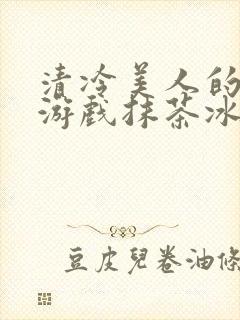 清冷美人的
游戏抹茶冰
豆皮兒卷油條